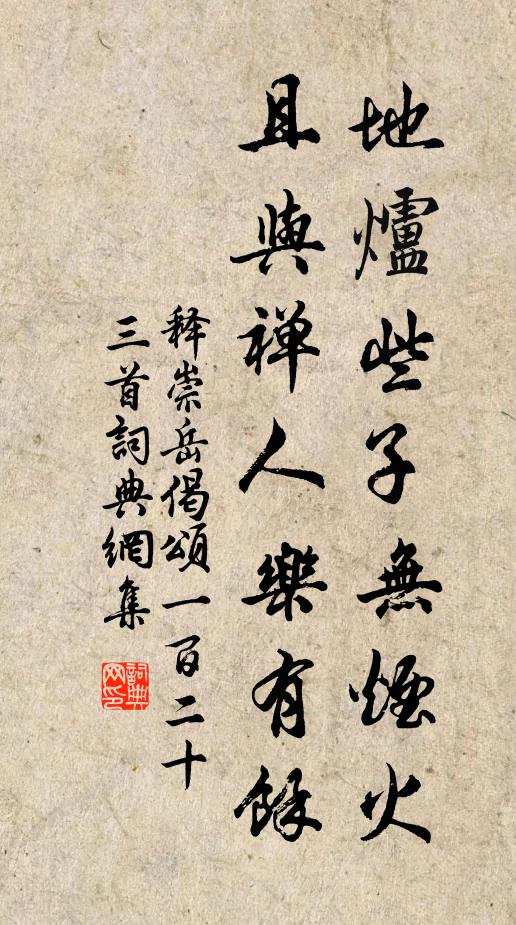 地爐些子無煙火
且與禅人樂有餘
释崇岳偈頌一百二十
三首詞典網集
詞典网印